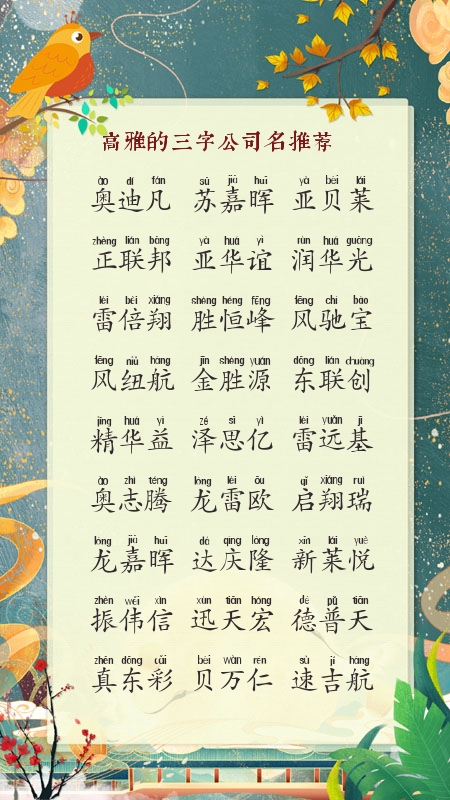 高雅的三字公司名推荐
ào dí fán sū jiā huī yà bèi lái
奥迪凡 苏嘉晖 亚贝莱
zhèng lián bāng yà huá yì rùn huá guāng
正联邦 亚华谊 润华光
léi bèi xiáng shèng héng fēng fēng chí bǎo
雷倍翔 胜恒峰 风驰宝
fēng niǔ háng jīn shèng yuán dōng lián chuàng
风纽航 金胜源 东联创
jīng huá yì zé sī yì léi yuǎn jī
精华益 泽思亿 雷远基
ào zhì téng lóng léi ōu qǐ xiáng ruì
奥志腾 龙雷欧 启翔瑞
lóng jiā huī dá qìng lóng xīn lái yuè
龙嘉晖 达庆隆 新莱悦
zhèn wěi xìn xùn tiān hóng dé pǔ tiān
振伟信 迅天宏 德普天
zhēn dōng cǎi bèi wàn rén sù jí háng
真东彩 贝万仁 速吉航